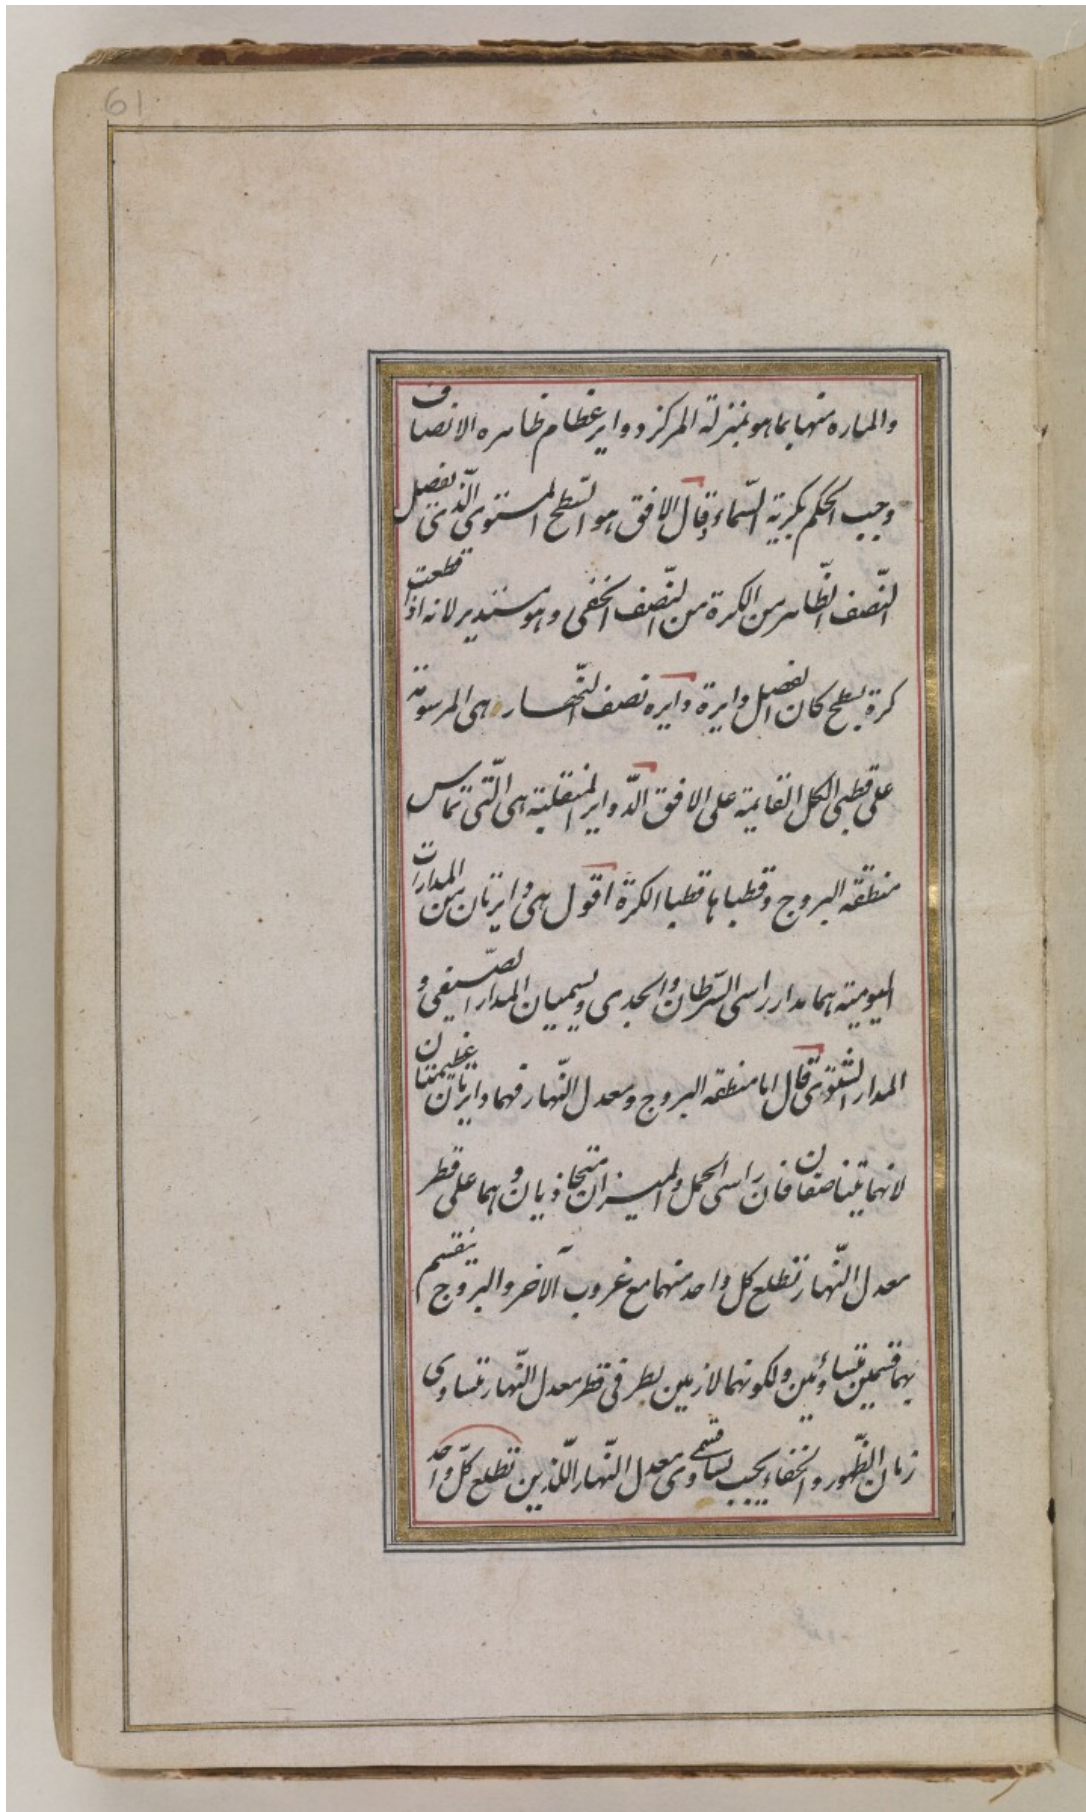 61
والمارة منها بما هو بمنزلة المركز دواير عظام ظاهره الانصاف
وجب الحكم بكرية السّماء وقال الافق هو السّطح المستوى الّذى يفصل
النّصف الظّاهر من الكرة من النّصف الخفى وهو مستدير لانه اذا قطعت
كرة بسطح كان الفصل دايرة دايره نصف النّهار هى المرسومة
على قطبى الكل القايمة على الافق الدّواير المنقلبة هى الّتى تماس
منطقه البروج وقطباها قطبا الكرة اقول هى دايرتان من المدارات
اليومية هما مدار راسى السّرطان والجدى ويسميان المدار الصّيفى و
المدار الشّتوى قال اما منطقه البروج ومعدل النّهار فهما دايرتان عظيمتان
لانهما يتناصفان فان راسى الحمل والميزان متحاذيان وهما على قطر
معدل النّهار تطلع كل واحد منهما مع غروب الآخر والبروج ينقسم
بهما قسمين متساويين ولكونهما لازمين لطرفى قطر معدل النّهار يتساوى
زمان الظّهور والخفاء يجب تساوى قسمى معدل النّهار اللّذين تطلع كلّ واحد